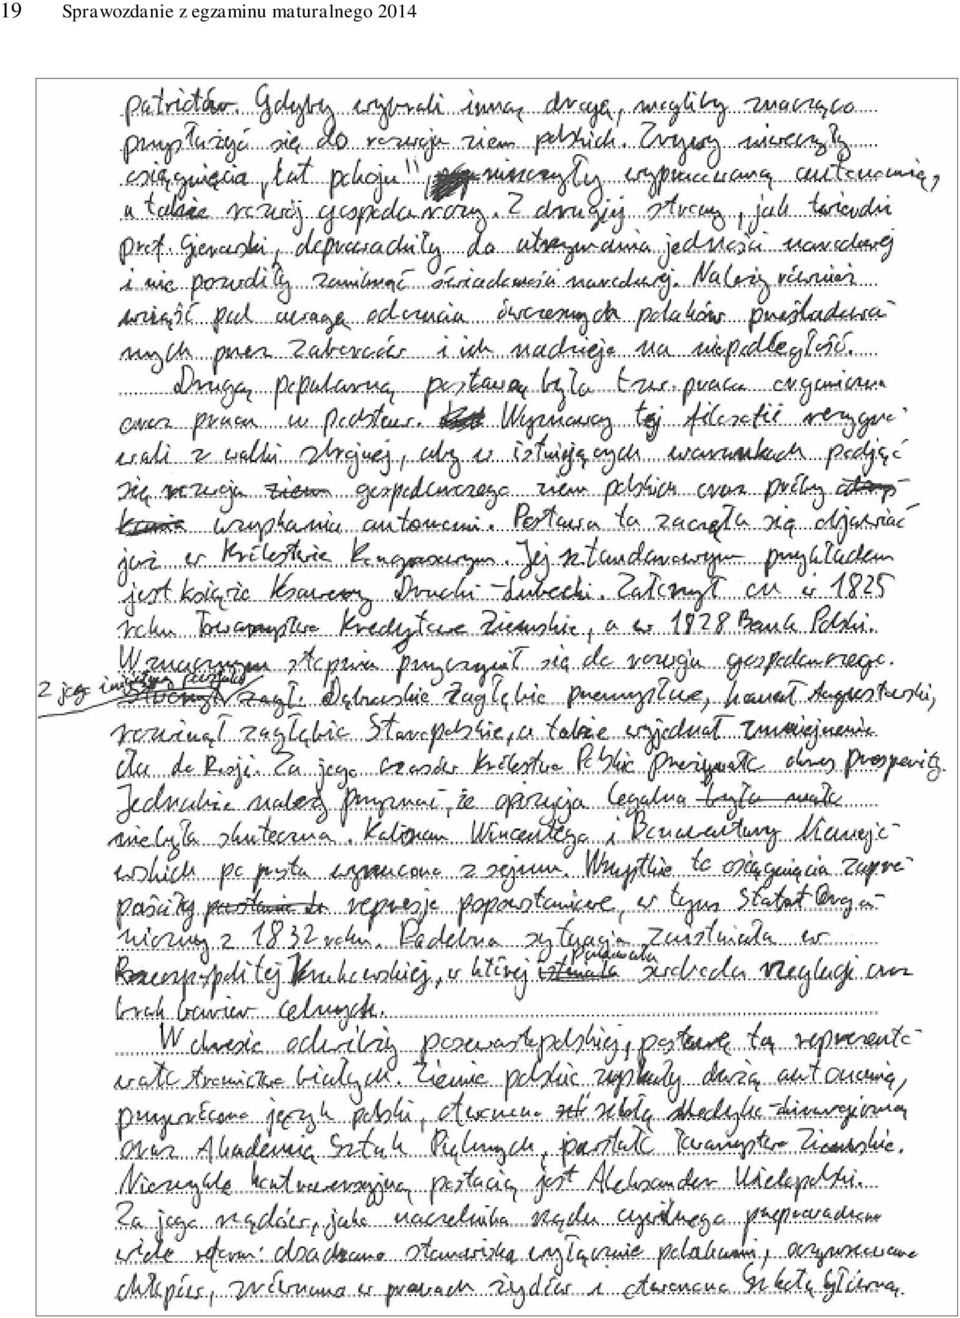 19 Sprawozdanie z egzaminu maturalnego 2014
patriotów. Gdyby wybrali inną drogę, mogliby znacząco
przysłużyć się do rozwoju ziem polskich. Zrywy niweczyły
osiągnięcia „lat pokoju", niszczyły wypracowaną autonomię,
a także rozwój gospodarczy. Z drugiej strony, jak twierdzi
prof. Gierowski, doprowadziły do utrzymania jedności narodowej
i nie pozwoliły zaniknąć świadomości narodowej. Należy również
wziąść pod uwagę odczucia ówczesnych polaków prześladowa-
nych przez zaborców i ich nadzieje na niepodległość.
Drugą popularną postawą była tzw. praca organiczna
oraz praca u podstaw. Wyznawcy tej filozofii rezygno-
wali z walki zbrojnej, aby w istniejących warunkach podjąć
się rozwoju ziem gospodarczego ziem polskich oraz próby
wzyskania autonomi. Postawa ta zaczęła się objawiać
już w Królestwie Kongresowym. Jej sztandarowym przykładem
jest książe Ksawery Drucki-Lubecki. Założył on w 1825
roku Towarzystwo Kredytowe Ziemskie, a w 1828 Bank Polski.
W znacznym stopniu przyczynił się do rozwoju gospodarczego.
Z jego inicjatywy powstało
zagł. Dąbrowskie Zagłębie przemysłowe, kanał Augustowski,
rozwinął zagłębie Staropolskie, a także wyjednał zmniejszenie
cła do Rosji. Za jego czasów Królestwo Polskie przeżywało okres prosperity.
Jednakże należy przyznać, że opozycja legalna była mało
nie była skuteczna. Kaliszan Wincentego i Bonawentury Niemojo-
wskich po prostu wyrzucono z sejmu. Wszystkie te osiągnięcia zaprze-
paściły represje popowstaniowe, w tym Statut Orga-
niczny z 1832 roku. Podobna sytuacja zaistniała w
Rzeczpospolitej Krakowskiej, w której panowała swoboda żeglugi oraz
brak barier celnych.
W okresie odwilży posewastopolskiej, postawę tą reprezento-
wało stronnictwo białych. Ziemie polskie zyskały dużą autonomię,
przywrócono język polski, otworzono szkołę Medyko-chirurgiczną
oraz Akademię Sztuk Pięknych, powstało Towarzystwo Ziemskie.
Niezwykle kontrowersyjną postacią jest Aleksander Wielopolski.
Za jego rządów, jako naczelnika rządu cywilnego przeprowadzono
wiele reform: obsadzono stanowiska wyłącznie polakami, oczynszowano
chłopów, zrównano w prawach żydów i otworzono Szkołę główną.